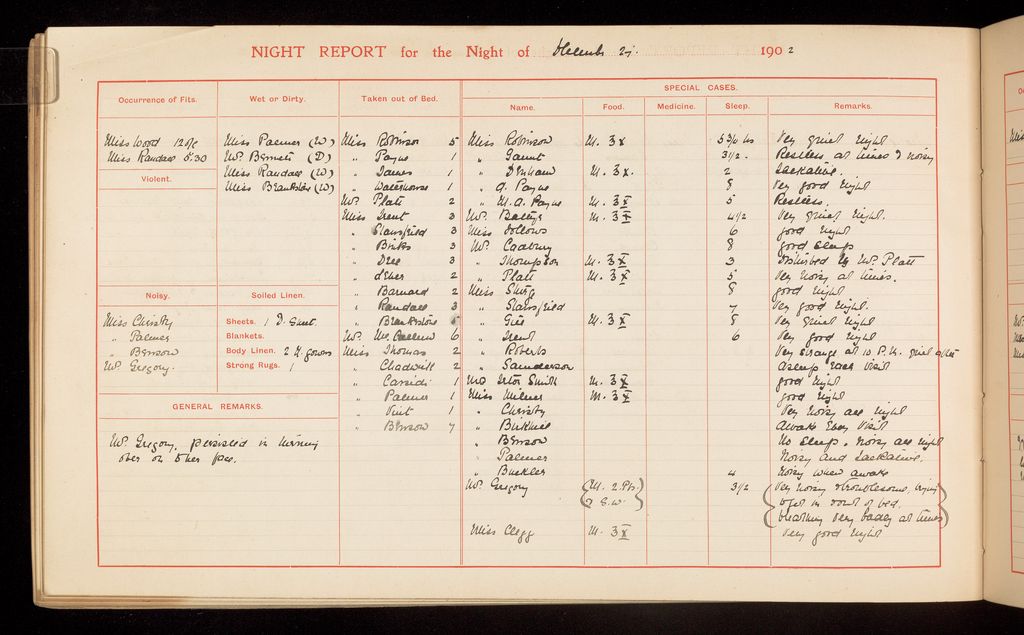 NIGHT REPORT for the Night of December 190 2
Occurrence of Fits.
Miss Wood
Miss Randall 8.30
Violent.
Noisy.
Miss Christy
" Palmer
" Benson
Mrs Gregory.
Wet or Dirty.
Miss Palmer (W)
Mrs Bennett (D)
Miss Randall (W)
Miss (W)
Soiled Linen.
Sheets. 1 D.
Blankets.
Body Linen. 2 N. gowns
Strong Rugs. 1
GENERAL REMARKS.
Mrs Gregory. persisted in turning
over on to her face.
Taken out of Bed.
Miss Robinson 5
" Payne 1
" 1
" Waterhouse 1
Platt 2
Miss Trent 3
" Stansfield 3
" 3
" 3
" 2
" Barnard 2
" Randall 3
" 5
6
Miss Thomas 2
" Chadwick 2
" 1
" Palmer 1
" 1
" Benson 7
SPECIAL CASES.
Name. Food. Medicine. Sleep. Remarks.
Miss Robinson M. 3 x 5 3/4 hrs Very quiet night
" Gaunt 3 1/2. Restless at times & noisy
" Denham M. 3 x. 2 Talkative.
" A. Payne 8 Very good night
" M. A. Payne M. 3 X 5 Restless.
M. 3 X 4 1/2 Very quiet night.
Miss Follows 6 good night
Cadbury 8 good sleep
" Thompson M. 3 X 3 Disturbed by Platt
" Platt M. 3 X 5 Very noisy at times.
Miss 8 good night
" Stansfield 7 Very good night.
" M. 3 X 8 Very quiet night
" Trent 6 Very good night
" Roberts Very strange at 10 P.M. quiet after
" Saunderson Asleep each visit
Smith M. 3 X good night
Miss Milner M. 3 X good night
" Christy Very noisy all night
" Awake every visit
" Benson No sleep. noisy all night
" Palmer Noisy and talkative.
" Buckler 4 Noisy when awake
Mrs Gregory (M. 2 Pts. 3 1/2 (Very noisy & troublesome, trying
to get in & out of bed.
breathing very badly at times)
Miss Clegg M. 3 X Very good night